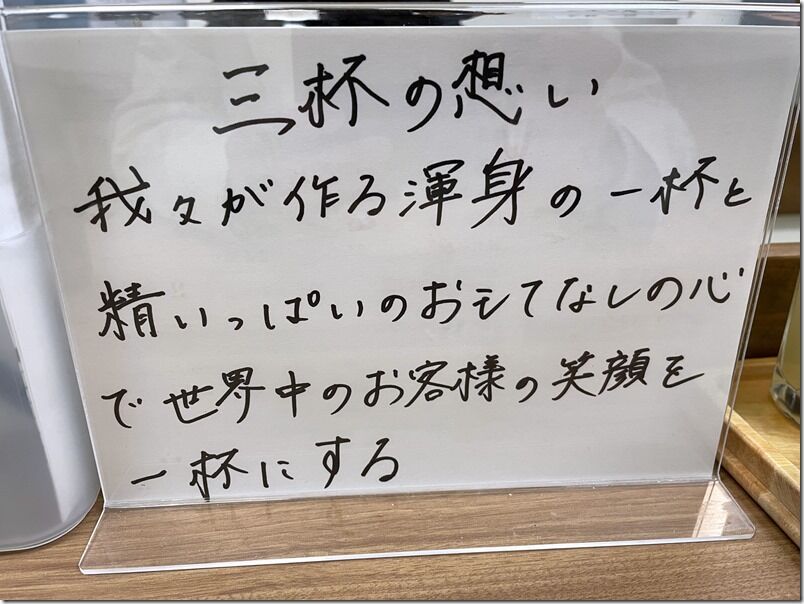 三杯の想い
我々が作る渾身の一杯と
精いっぱいのおもてなしの心
で世界中のお客様の笑顔を
一杯にする